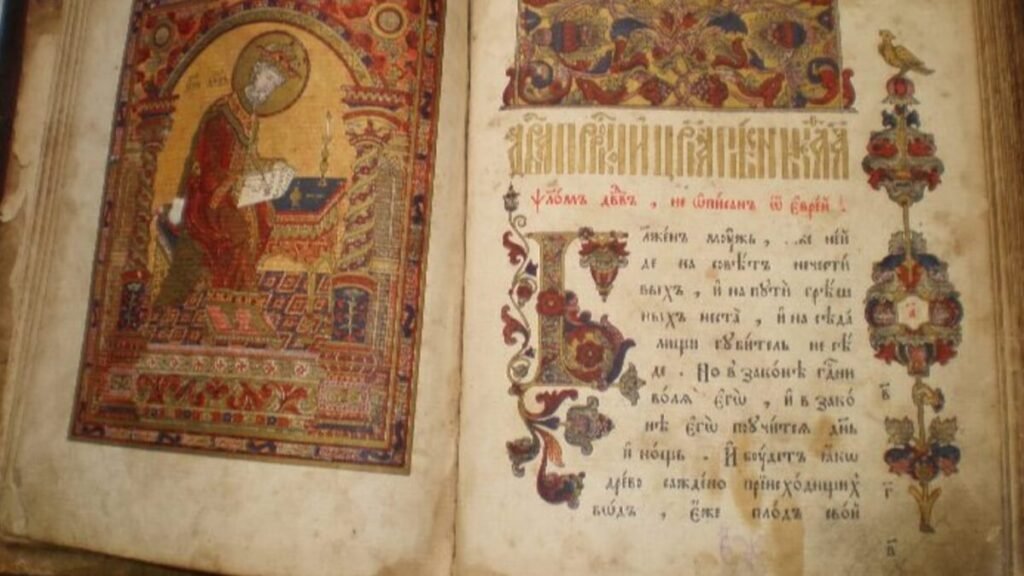 ѱлⷪ҇мъ дв҃двъ , не ѡ҆писан ѿ є҆врей .
Блаженъ моужь , иже не и҆
де на совѣтъ нечести
выхъ , и҆ на пꙋти грѣш
ныхъ неста , и҆ на сѣда
лищи гꙋбитель не сѣ
де . Но в законѣ гдⷭ҇ни
волѧ є҆гѡ̀ , и҆ в зако
нѣ є҆гѡ̀ поꙋчитсѧ дн҃ь
и҆ нощь . И҆ боудетъ ꙗ҆кѡ
древо саждено при и҆сходищихъ
вѡдъ , є҆же плодъ свой